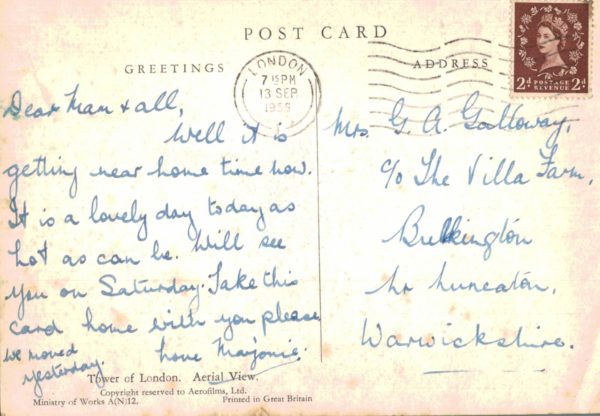 POST CARD
GREETINGS
ADDRESS
LONDON
7 15 PM
13 SEP
1955
2d POSTAGE REVENUE 2d
Dear Mam & all,
Well it is
getting near home time now.
It is a lovely day today as
hot as can be. Will see
you on Saturday. Take this
card home with you please
love Marjorie.
we moved
yesterday.
Mrs. G. A. Galloway,
c/o The Villa Farm,
Bulkington
nr nuneaton,
Warwickshire.
Tower of London. Aerial View.
Copyright reserved to Aerofilms, Ltd.
Ministry of Works A(N)12.
Printed in Great Britain